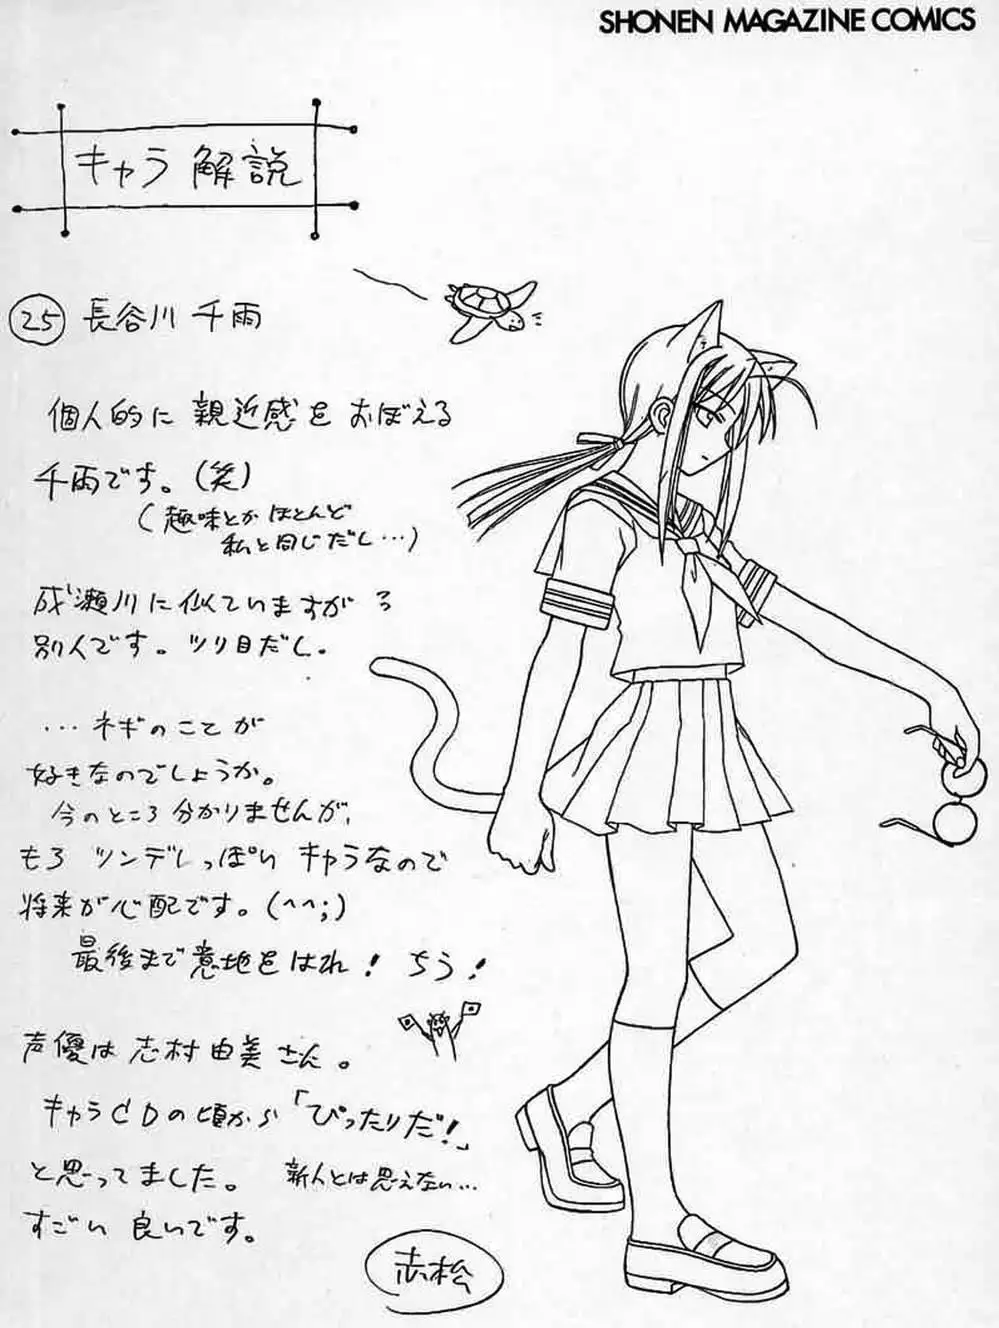 SHONEN MAGAZINE COMICS
キャラ 解説
㉕ 長谷川 千雨
個人的に 親近感を おぼえる
千雨です。(笑)
(趣味とか ほとんど
私と同じだし…)
成瀬川に似ていますが
別人です。ツリ目だし。
…ネギのことが
好きなのでしょうか。
今のところ分かりませんが、
もろ ツンデレっぽい キャラなので
将来が心配です。(^^;)
最後まで意地をはれ! ちう!
声優は 志村由美さん。
キャラCDの頃から「ぴったりだ!」
と思ってました。 新人とは思えない…
すごい 良いです。
赤松